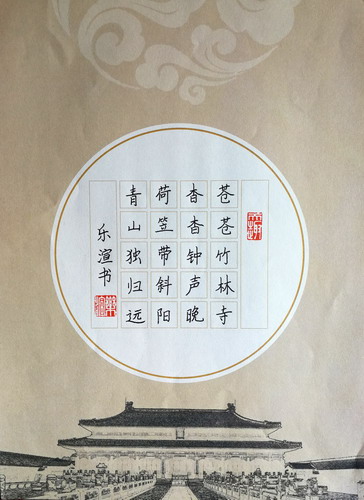 苍苍竹林寺
杳杳钟声晚
荷笠带斜阳
青山独归远
乐渲书